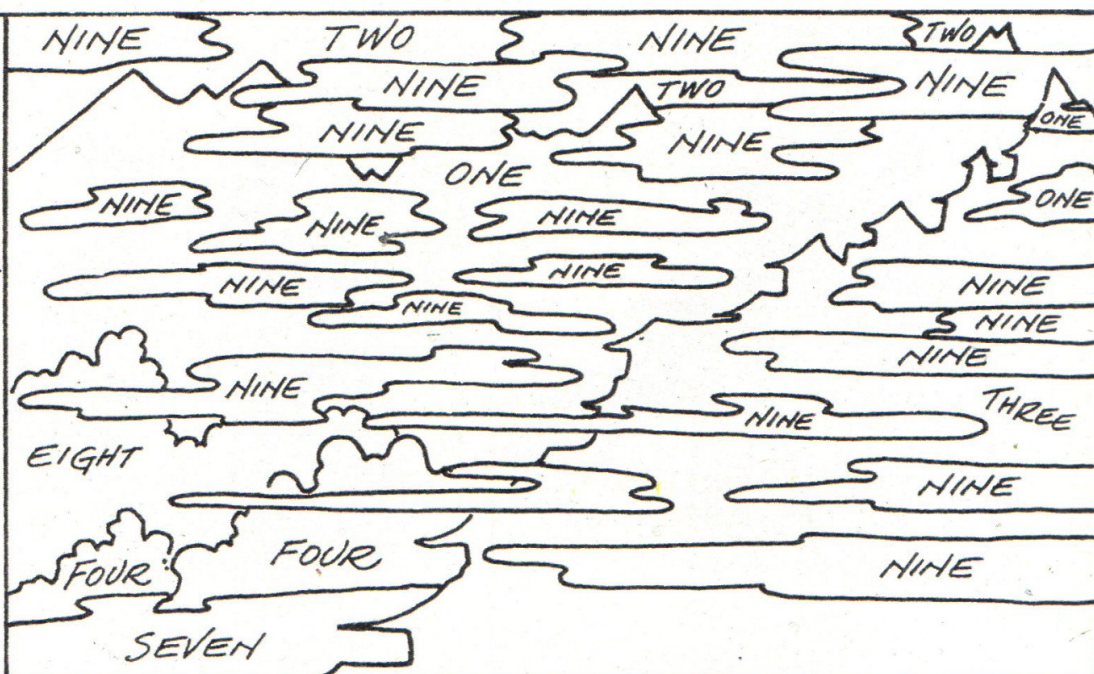 NINE TWO NINE TWO
NINE TWO NINE
NINE NINE ONE
ONE
NINE NINE NINE ONE
NINE NINE NINE
NINE NINE
NINE NINE
NINE THREE
EIGHT
NINE
FOUR FOUR NINE
SEVEN